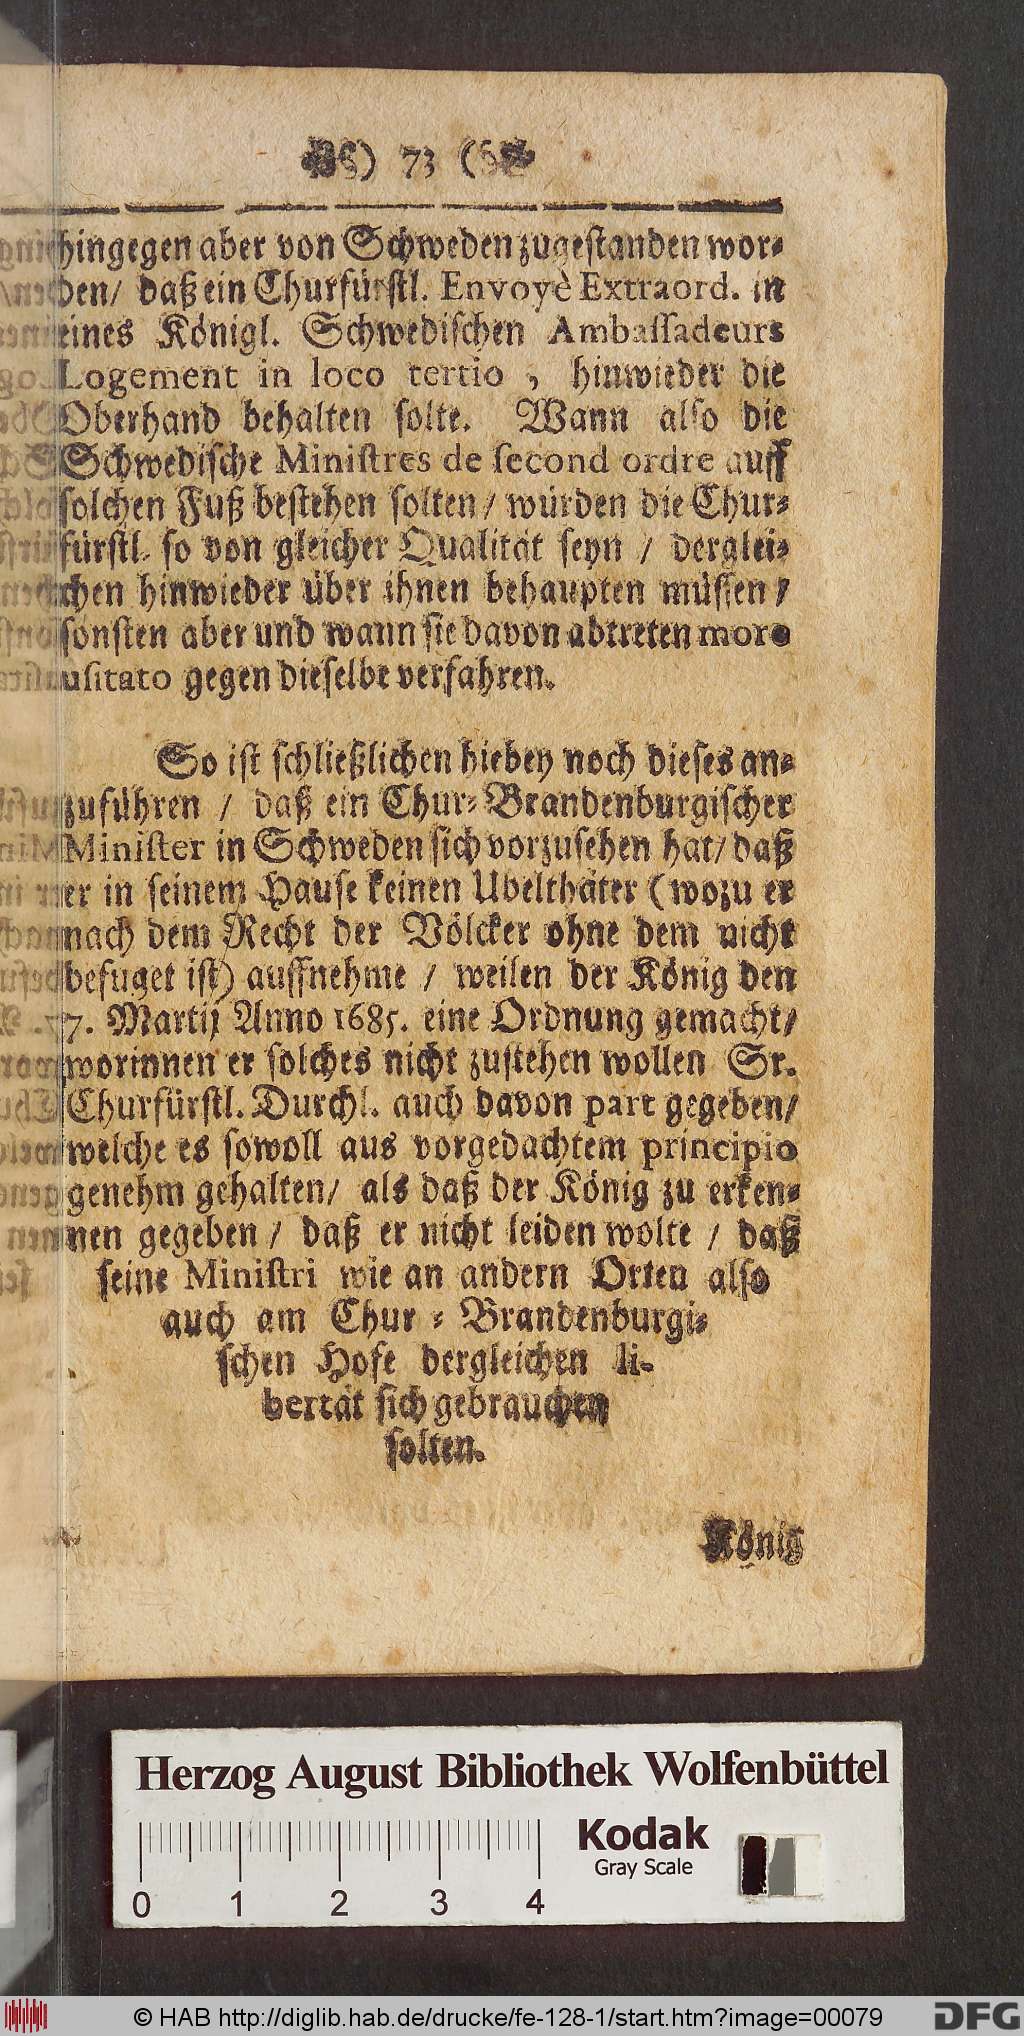 ) 73 (
hingegen aber von Schweden zugestanden wor-
den/ daß ein Churfürstl. Envoyè Extraord. in
eines Königl. Schwedischen Ambassadeurs
Logement in loco tertio , hinwieder die
Oberhand behalten solte. Wann also die
Schwedische Ministres de second ordre auff
solchen Fuß bestehen solten / würden die Chur-
fürstl. so von gleicher Qualität seyn / derglei-
chen hinwieder über ihnen behaupten müssen /
sonsten aber und wann sie davon abtreten more
usitato gegen dieselbe verfahren.
So ist schließlichen hiebey noch dieses an-
zuführen / daß ein Chur-Brandenburgischer
Minister in Schweden sich vorzusehen hat/ daß
er in seinem Hause keinen Ubelthäter (wozu er
nach dem Recht der Völcker ohne dem nicht
befuget ist) auffnehme / weilen der König den
7. Martij Anno 1685. eine Ordnung gemacht/
worinnen er solches nicht zustehen wollen Sr.
Churfürstl. Durchl. auch davon part gegeben/
welche es sowoll aus vorgedachtem principio
genehm gehalten/ als daß der König zu erken-
nen gegeben / daß er nicht leiden wolte / daß
seine Ministri wie an andern Orten also
auch am Chur - Brandenburgi-
schen Hofe dergleichen li-
bertät sich gebrauchen
solten.
König
Herzog August Bibliothek Wolfenbüttel
Kodak
Gray Scale
0 1 2 3 4
© HAB http://diglib.hab.de/drucke/fe-128-1/start.htm?image=00079
DFG